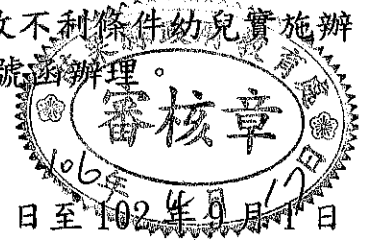 收不利條件幼兒實施辦
號函辦理。
教育處
審核章
106年4月17日
日至102年9月1日